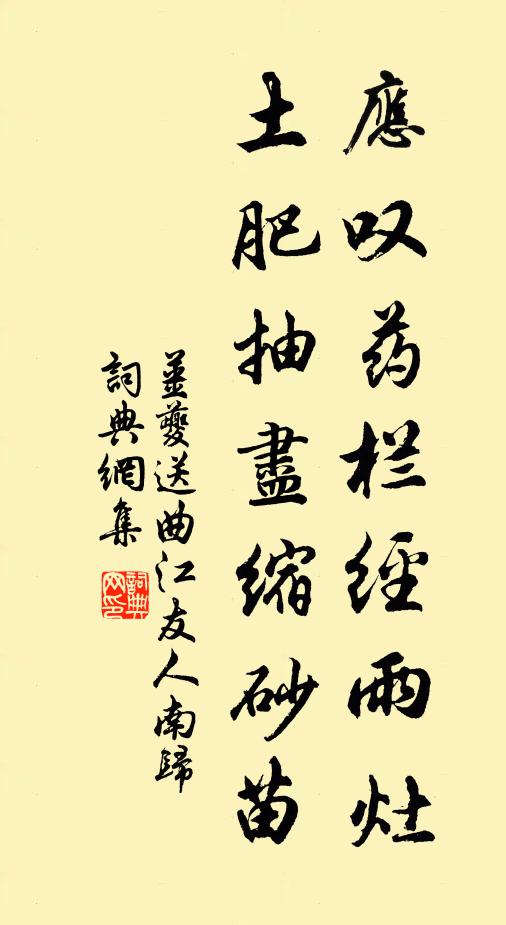 應叹药栏經雨灶
土肥抽盡缩砂苗
姜夔送曲江友人南歸
詞典網集
詞典网印